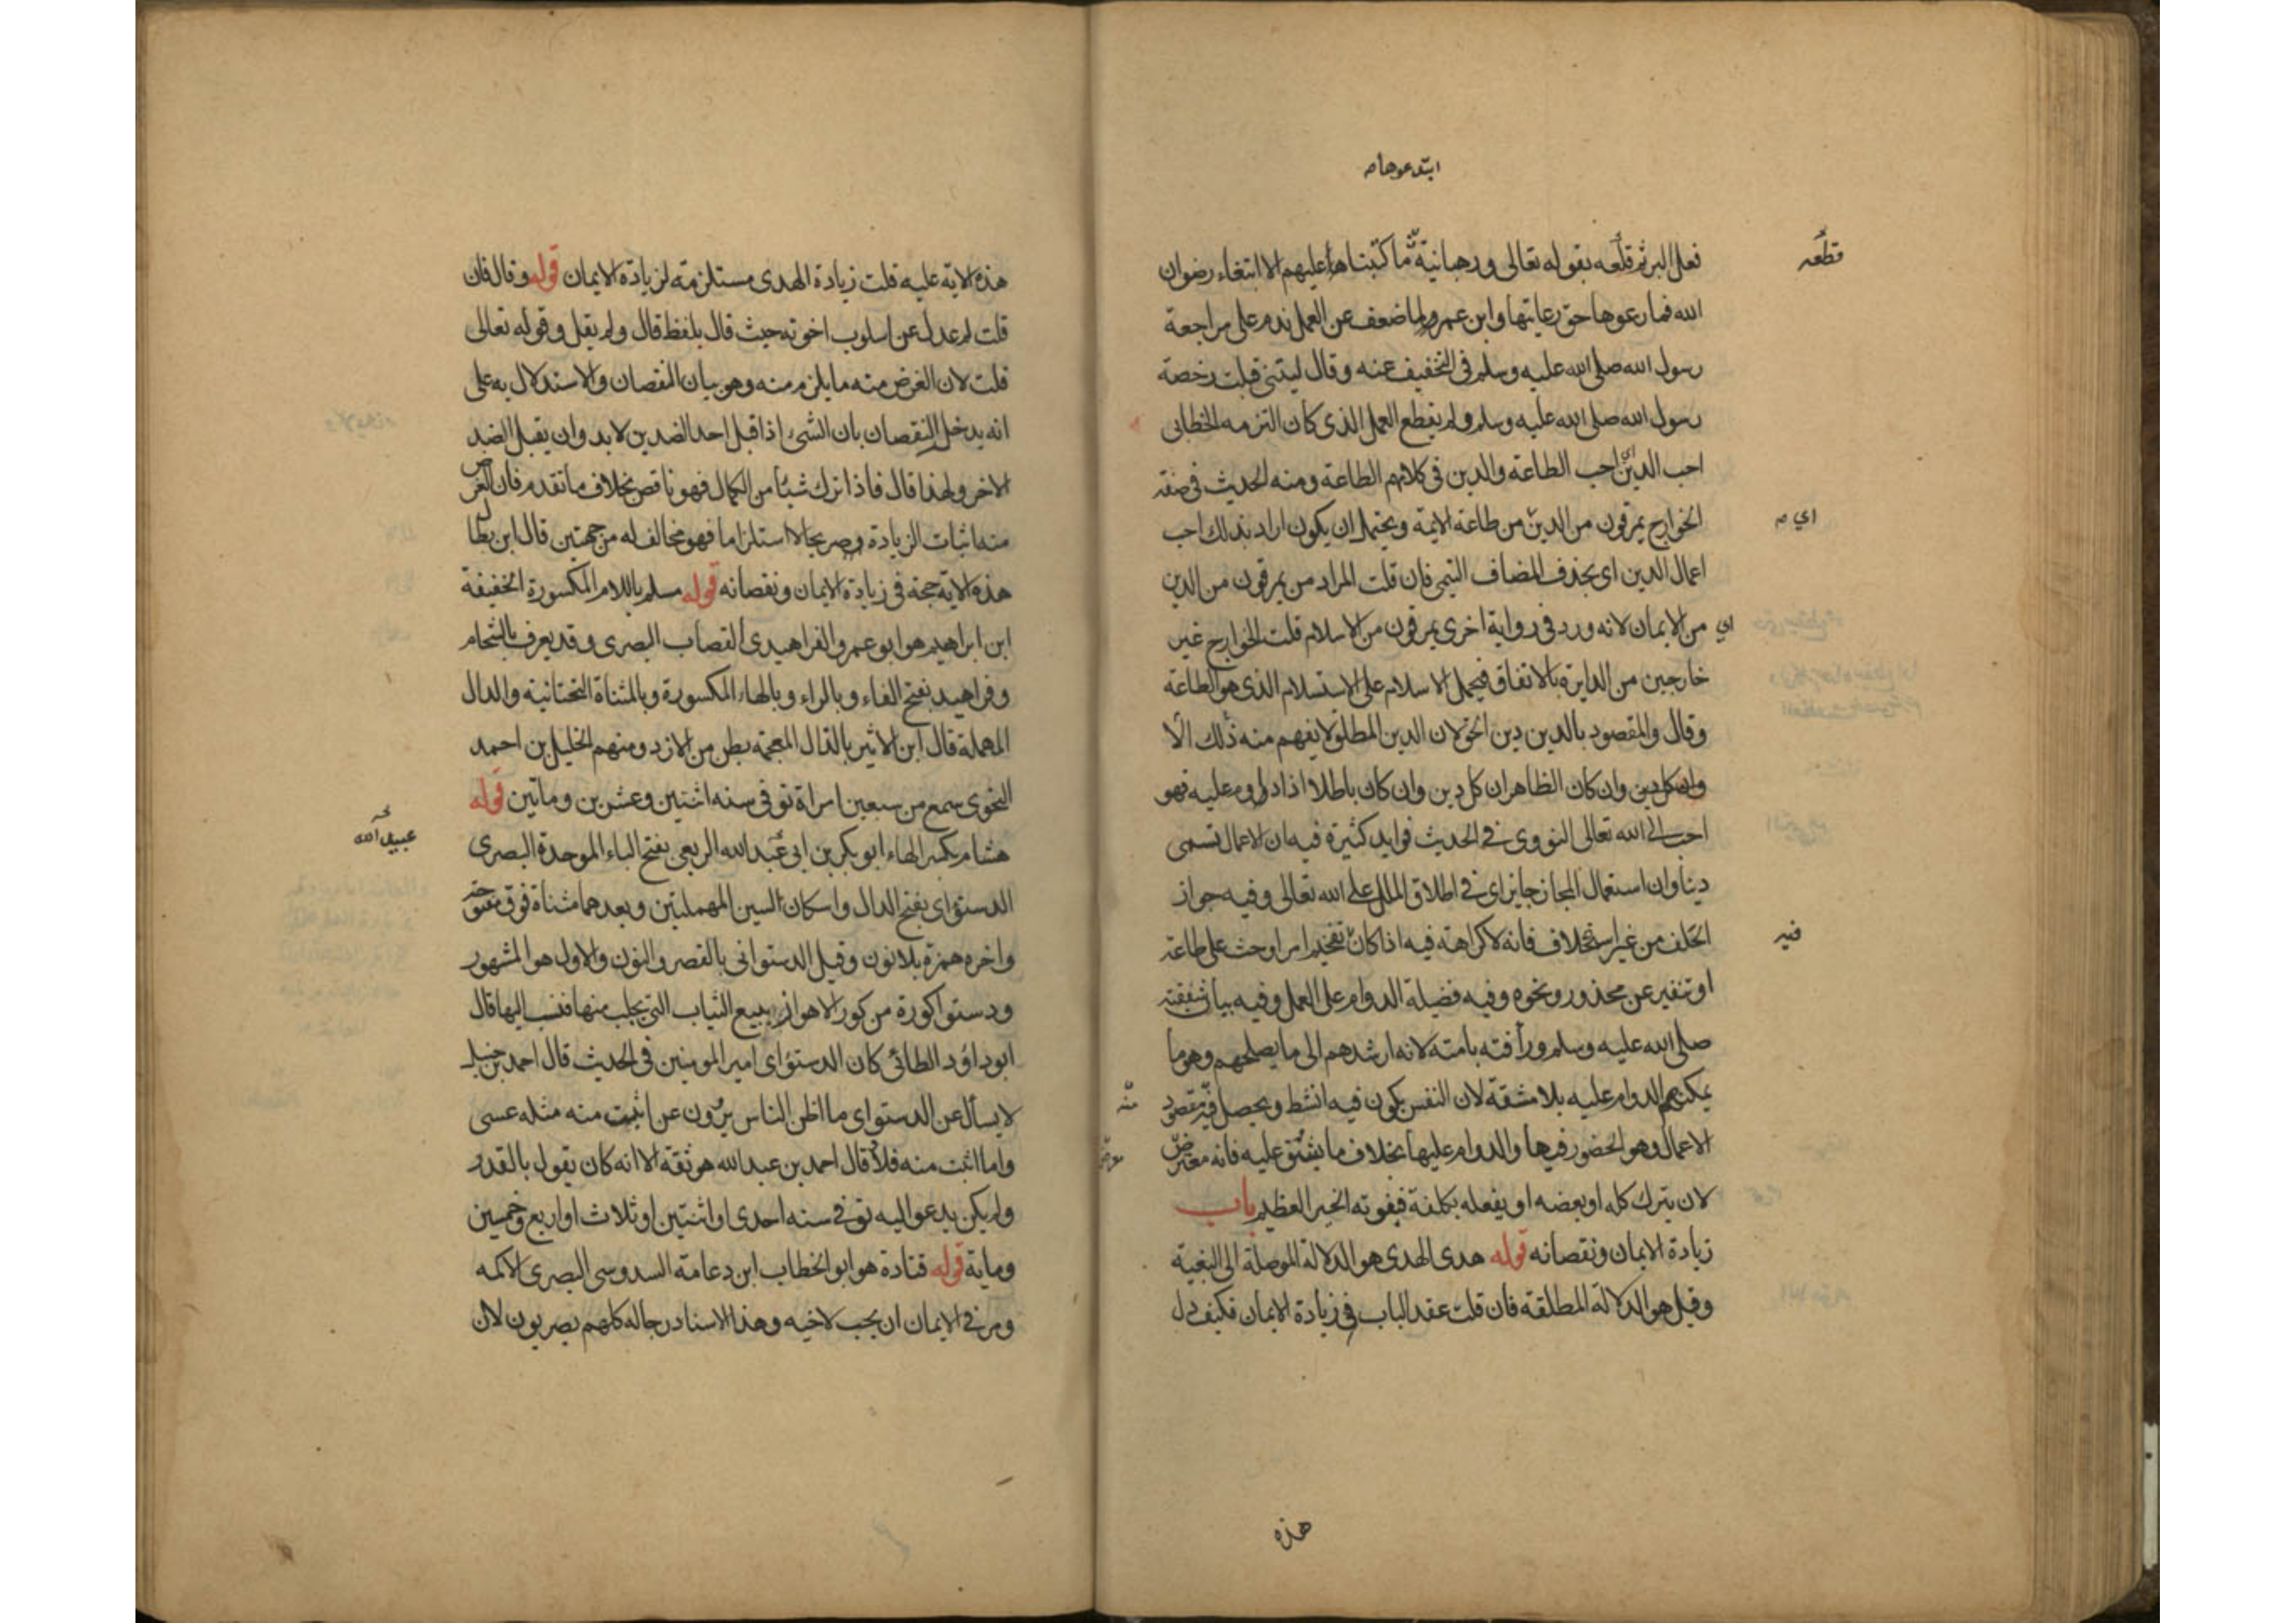 ابتدعوها م
فعل البر ثم قلعه بقوله تعالى ورهبانية ما كتبناها عليهم الا ابتغاء رضوان
قطعه
الله فما رعوها حق رعايتها وابن عمرو لما ضعف عن العمل ندم على مراجعة
رسول الله صلى الله عليه وسلم في التخفيف عنه وقال ليتني قبلت رخصة
رسول الله صلى الله عليه وسلم ولم يقطع العمل الذي كان التزمه الخطابي
احب الدين اي احب الطاعة والدين في كلامهم الطاعة ومنه الحديث في صفة
الخوارج يمرقون من الدين من طاعة الايمة ويحتمل ان يكون اراد بذلك احب
اي م
اعمال الدين اي بحذف المضاف التيمي فان قلت المراد من يمرقون من الدين
اي من الايمان لانه ورد في رواية اخرى يمرقون من الاسلام قلت الخوارج غير
خارجين من الدايرة بالاتفاق فيحمل الاسلام على الاستسلام الذي هو الطاعة
وقال والمقصود بالدين دين الحق لان الدين المطلق لا يفهم منه ذلك الا
وان كل دين وان كان الظاهر ان كل دين وان كان باطلا اذا دووم عليه فهو
احب الى الله تعالى النووي في الحديث فوايد كثيرة فيه ان الاعمال تسمى
دينا وان استعمال المجاز جايز اي في اطلاق الملل على الله تعالى وفيه جواز
الحلف من غير استحلاف فانه لا كراهة فيه اذا كان تفخيم امر او حث على طاعة
فيه
او تنفير عن محذور ونحوه وفيه فضيلة الدوام على العمل وفيه بيان شفقته
صلى الله عليه وسلم ورأفته بامته لانه ارشدهم الى ما يصلحهم وهو ما
يمكنهم الدوام عليه بلا مشقة لان النفس يكون فيه انشط ويحصل فيه مقصود
منه
الاعمال وهو الحضور فيها والدوام عليها بخلاف ما يشق عليه فانه معترض
لان يترك كله او بعضه او يفعله بكلفة فيفوته الخير العظيم باب
زيادة الايمان ونقصانه قوله هدى الهدى هو الدلالة الموصلة الى البغية
وقيل هو الدلالة المطلقة فان قلت عقد الباب في زيادة الايمان فكيف دل
هذه
هذه الاية عليه قلت زيادة الهدى مستلزمة لزيادة الايمان قوله وقال فان
قلت لم عدل عن اسلوب اخوته حيث قال بلفظ قال ولم يقل وقوله تعالى
قلت لان الغرض منه ما يلزم منه وهو بيان النقصان والاستدلال به على
انه يدخل النقصان بان الشيء اذا قبل احد الضدين لا بد وان يقبل الضد
الاخر ولهذا قال فاذا ترك شيئا من الكمال فهو ناقص بخلاف ما تقدم فان الغرض
منه اثبات الزيادة وصريحا لا استلزاما فهو مخالف له من جهتين قال ابن بطال
هذه الاية حجة في زيادة الايمان ونقصانه قوله مسلم باللام المكسورة الخفيفة
ابن ابراهيم هو ابو عمرو الفراهيدي القصاب البصري وقد يعرف بالشحام
وفراهيد بفتح الفاء وبالراء وبالهاء المكسورة وبالمثناة التحتانية والدال
المهملة قال ابن الاثير بالذال المعجمة بطن من الازد ومنهم الخليل بن احمد
النحوي سمع من سبعين امراة توفي سنه اثنتين وعشرين وماتين قوله
هشام بكسر الهاء ابو بكر بن ابي عبد الله الربعي بفتح الباء الموحدة البصري
عبيد الله
الدستواي بفتح الدال واسكان السين المهملتين وبعدهما مثناة فوق مفتوحة
واخره همزة بلا نون وقيل الدستواني بالقصر والنون والاول هو المشهور
ودستوا كورة من كور الاهواز يبيع الثياب التي يجلب منها فنسب اليها قال
ابو داود الطائي كان الدستواي امير المومنين في الحديث قال احمد بن حنبل
لا يسأل عن الدستواي ما اظن الناس يروون عن اثبت منه مثله عسى
واما اثبت منه فلا قال احمد بن عبد الله هو ثقة الا انه كان يقول بالقدر
ولم يكن يدعو اليه توفي سنه احدى او اثنتين او ثلاث او اربع وخمسين
وماية قوله قتادة هو ابو الخطاب ابن دعامة السدوسي البصري الاكمه
ومر في الايمان ان يحب لاخيه وهذا الاسناد رجاله كلهم بصريون لان